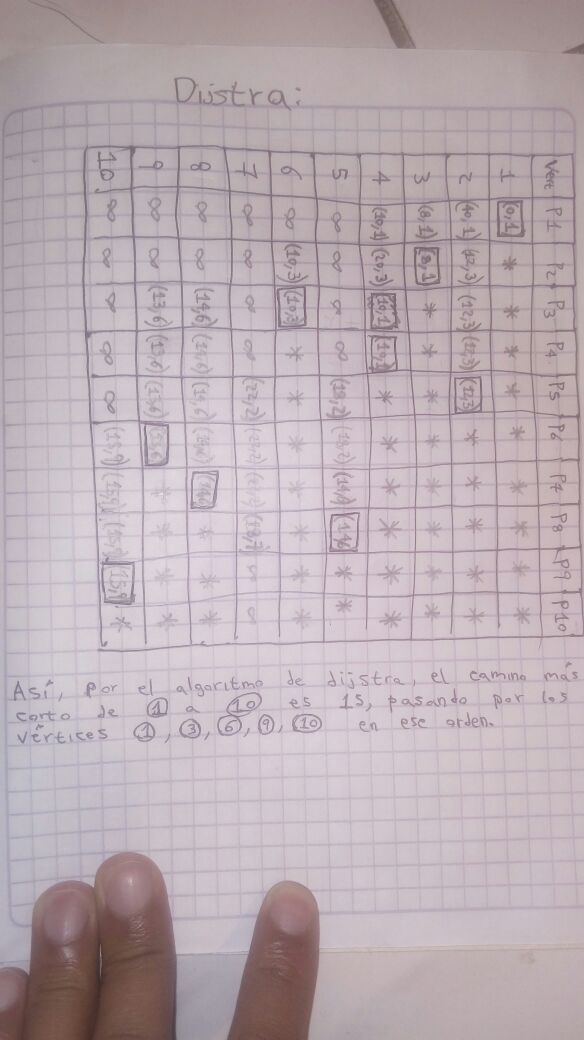 Dijstra:
Vert P1 P2 P3 P4 P5 P6 P7 P8 P9 P10
1 (0,1) * * * * * * * * *
2 (12,3) (12,3) (12,3) (12,3) * * * * *
3 (8,1) (8,1) * * * * * * * *
4 (10,1) (20,3) (10,1) (10,1) * * * * * *
5 ∞ ∞ ∞ ∞ (19,2) (19,2) * *
6 ∞ (10,3) (10,3) * * * * * * *
7 ∞ ∞ ∞ ∞ (22,2) (22,2) ∞ ∞
8 ∞ ∞ (14,6) (14,6) (14,6) * * *
9 ∞ ∞ (13,6) (13,6) (13,6) (13,6) * * * *
10 ∞ ∞ ∞ ∞ ∞ (15,9) (15,9) (15,9) (15,9) *
Así, por el algoritmo de dijstra, el camino más
corto de 1 a 10 es 15, pasando por los
vértices 1, 3, 6, 9, 10 en ese orden.